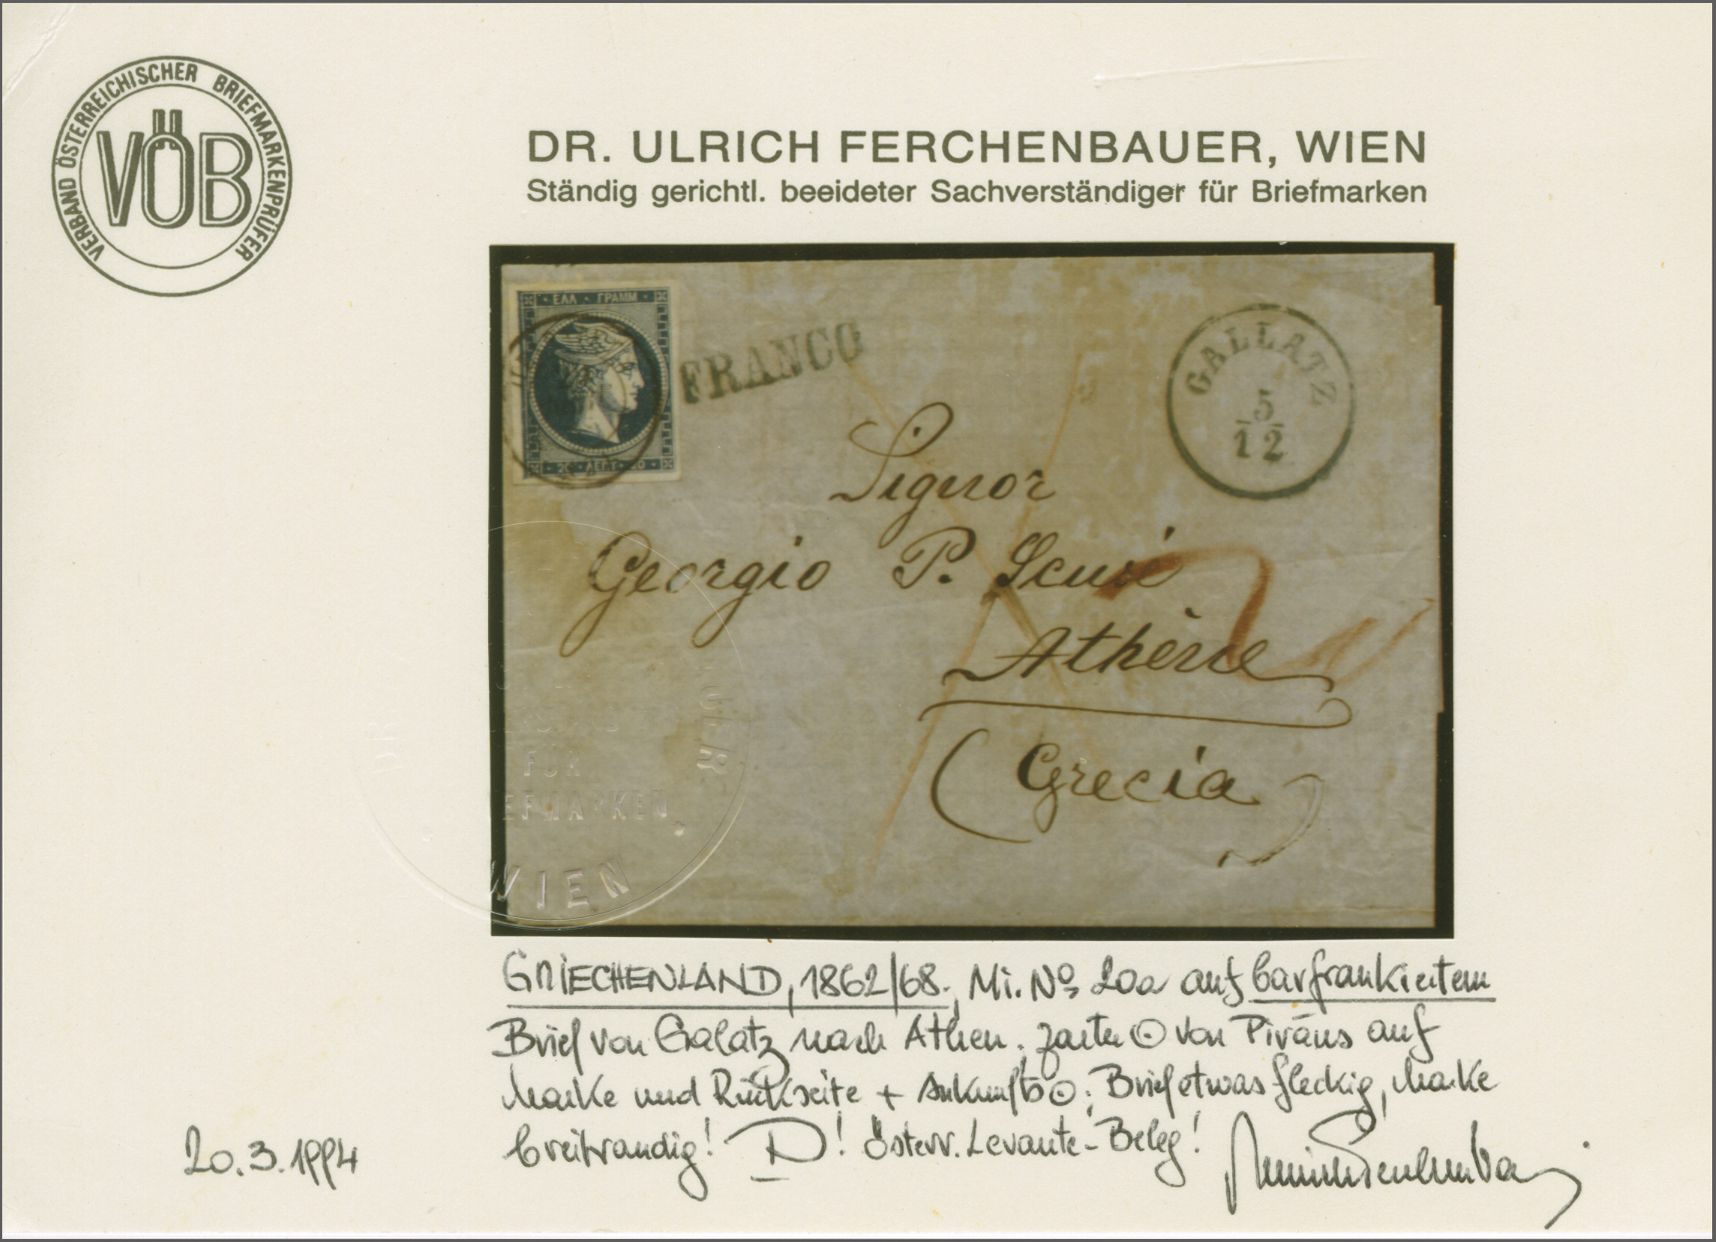 VERBAND ÖSTERREICHISCHER BRIEFMARKENPRÜFER
VÖB
DR. ULRICH FERCHENBAUER, WIEN
Ständig gerichtl. beeideter Sachverständiger für Briefmarken
ΕΛΛ · ΓΡΑΜΜ
20 · ΛΕΠΤ · 20
FRANCO
GALLATZ
5
12
Signor
Georgio P.
Athène
(Grecia)
FÜR
WIEN
GRIECHENLAND, 1862/68, Mi. No 20a auf barfrankiertem
Brief von Galatz nach Athen, zarter ⊙ von Piräus auf
Marke und Rückseite + Ankunfts⊙; Brief etwas fleckig, Marke
breitrandig! D! Österr. Levante-Beleg!
20.3.1994